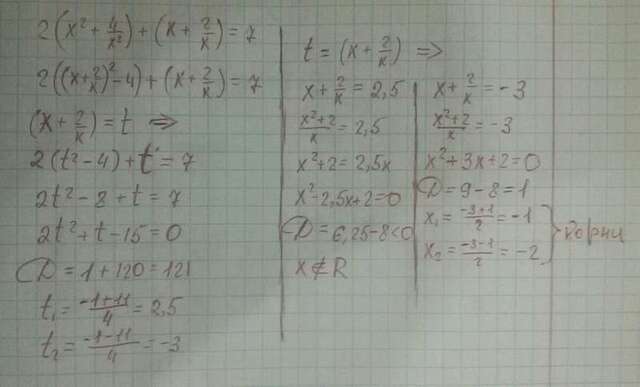 2(x² + 4/x²) + (x + 2/x) = 7
2((x + 2/x)² - 4) + (x + 2/x) = 7
(x + 2/x) = t ⇒
2(t² - 4) + t = 7
2t² - 8 + t = 7
2t² + t - 15 = 0
D = 1 + 120 = 121
t₁ = (-1+11)/4 = 2,5
t₂ = (-1-11)/4 = -3
t = (x + 2/x) ⇒
x + 2/x = 2,5
(x²+2)/x = 2,5
x² + 2 = 2,5x
x² - 2,5x + 2 = 0
D = 6,25 - 8 < 0
x ∉ R
x + 2/x = -3
(x²+2)/x = -3
x² + 3x + 2 = 0
D = 9 - 8 = 1
x₁ = (-3+1)/2 = -1
x₂ = (-3-1)/2 = -2
корни